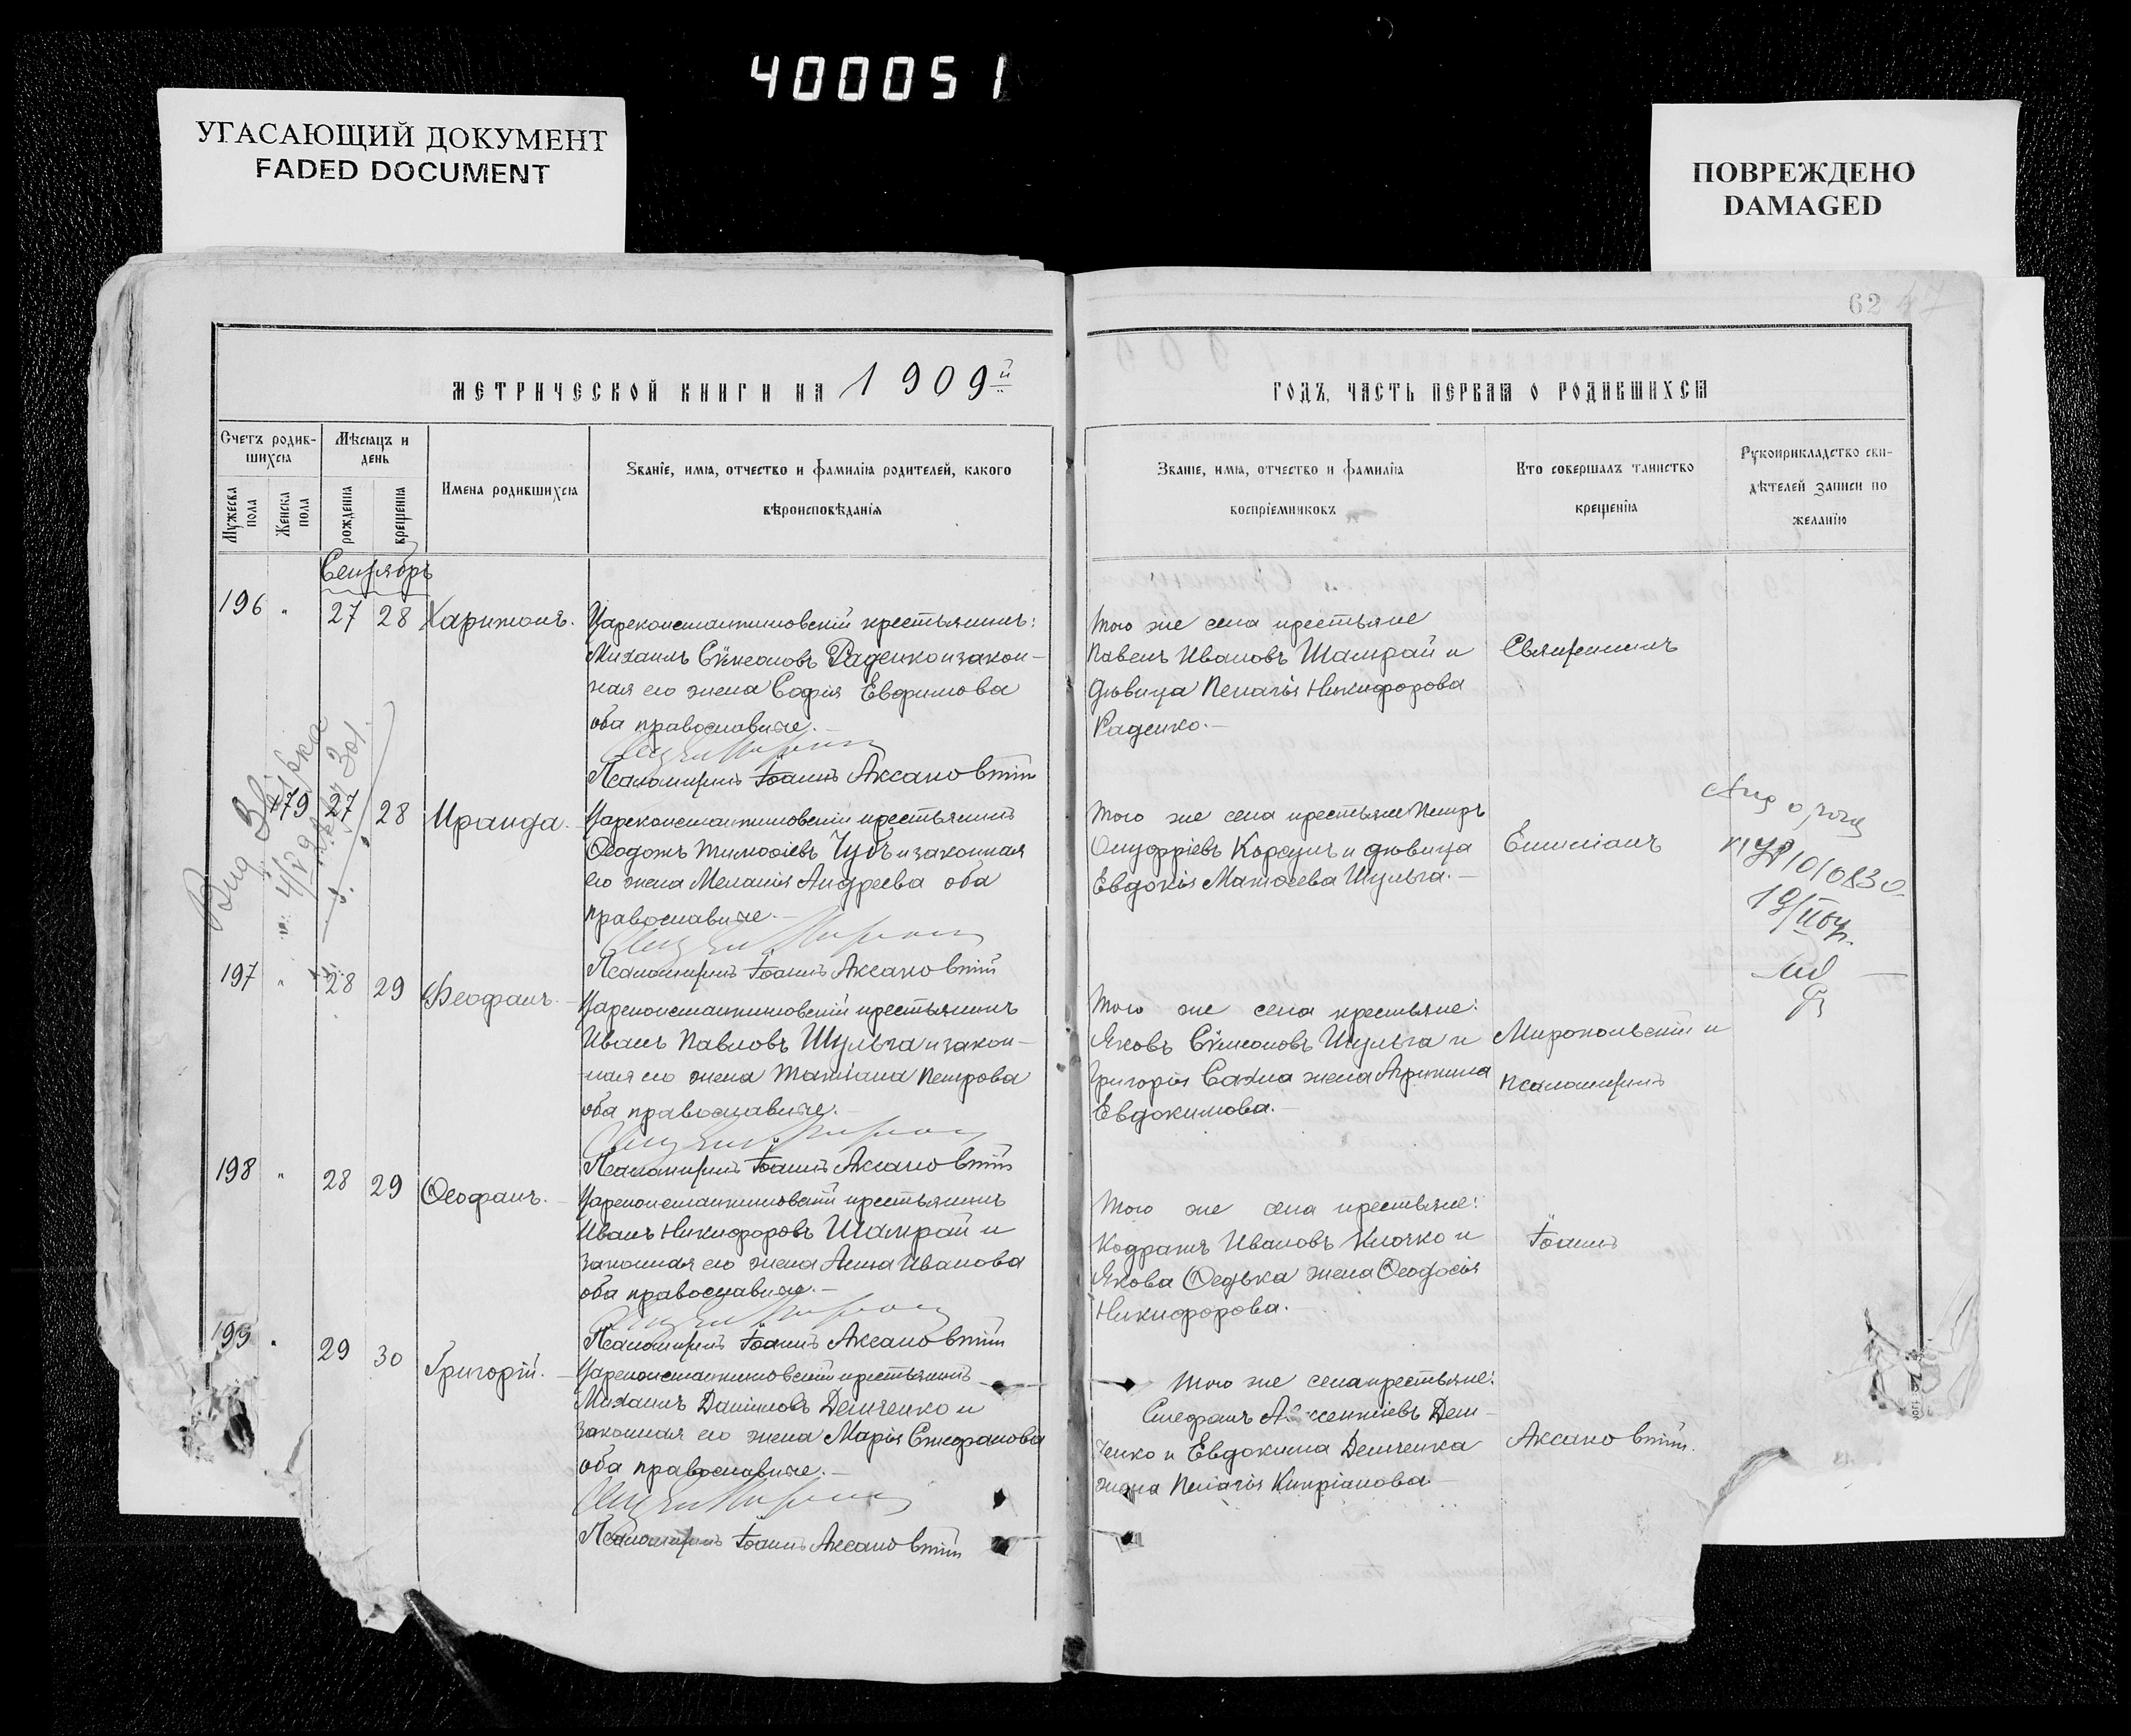 400051
УГАСАЮЩИЙ ДОКУМЕНТ
FADED DOCUMENT
ПОВРЕЖДЕНО
DAMAGED
62 47
МЕТРИЧЕСКОЙ КНИГИ НА 1909й
ГОДЪ, ЧАСТЬ ПЕРВАЯ О РОДИВШИХСЯ
Счетъ родив-
шихся
Мужеска
пола
Женска
пола
Мѣсяцъ и
день
рожденія
крещенія
Имена родившихся
Званіе, имя, отчество и фамилія родителей, какого
вѣроисповѣданія
Званіе, имя, отчество и фамилія
воспріемниковъ
Кто совершалъ таинство
крещенія
Рукоприкладство сви-
дѣтелей записи по
желанію
Сентябрь
196 " 27 28 Харитонъ.
Цареконстантиновскій крестьянинъ:
Михаилъ Сѵмеоновъ Раденко и закон-
ная его жена Софія Евфимова
оба православные.
Псаломщикъ Іоаннъ Аксановскій
Того же села крестьяне
Павелъ Ивановъ Шамрай и
дѣвица Пелагія Никифорова
Раденко.
Священникъ
179 27 28 Ираида.
Цареконстантиновскій крестьянинъ
Ѳеодотъ Тимоѳіевъ Чубъ и законная
его жена Меланія Андреева оба
православные.
Псаломщикъ Іоаннъ Аксановскій
Того же села крестьяне Петръ
Онуфріевъ Корсунъ и дѣвица
Евдокія Матѳеева Шульга.
Емиліанъ
197 " 28 29 Феофанъ.
Цареконстантиновскій крестьянинъ
Иванъ Павловъ Шульга и закон-
ная его жена Татіана Петрова
оба православные.
Псаломщикъ Іоаннъ Аксановскій
Того же села крестьяне:
Яковъ Сѵмеоновъ Шульга и
Григорія Сахна жена Агрипина
Евдокимова.
Миропольскій и
псаломщикъ
198 " 28 29 Ѳеофанъ.
Цареконстантиновскій крестьянинъ
Иванъ Никифоровъ Шамрай и
законная его жена Анна Иванова
оба православные.
Псаломщикъ Іоаннъ Аксановскій
Того же села крестьяне:
Кодратъ Ивановъ Клочко и
Якова Ѳедька жена Ѳеодосія
Никифорова.
Іоаннъ
199 " 29 30 Григорій.
Цареконстантиновскій крестьянинъ
Михаилъ Даніиловъ Демченко и
законная его жена Марія Стефанова
оба православные.
Псаломщикъ Іоаннъ Аксановскій
Того же села крестьяне:
Стефанъ Авксентіевъ Дем-
ченко и Евдокима Демченка
жена Пелагія Кипріанова
Аксановскій.